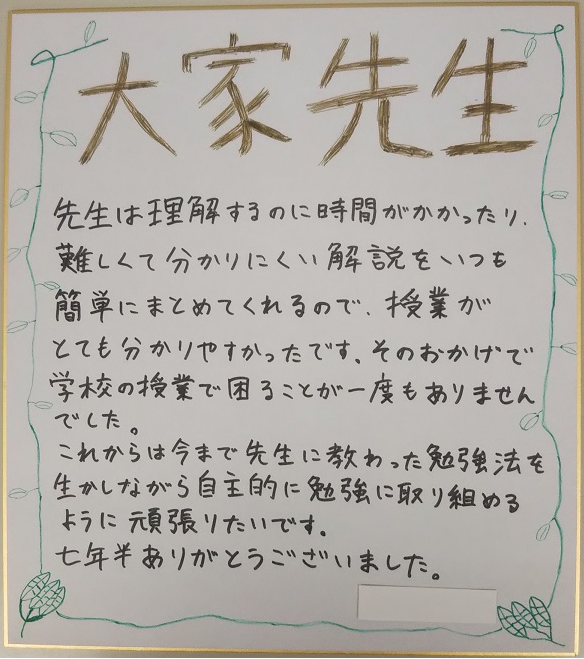 大家先生
先生は理解するのに時間がかかったり、
難しくて分かりにくい解説をいつも
簡単にまとめてくれるので、授業が
とても分かりやすかったです。そのおかげで
学校の授業で困ることが一度もありません
でした。
これからは今まで先生に教わった勉強法を
生かしながら自主的に勉強に取り組める
ように頑張りたいです。
七年半ありがとうございました。